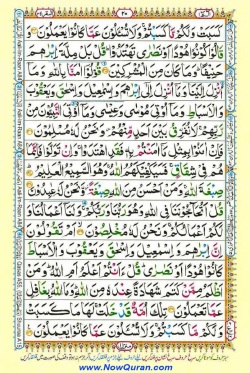 ٢٠
كَسَبَتْ وَلَكُمْ مَّا كَسَبْتُمْ وَلَا تُسْـَٔلُوْنَ عَمَّا كَانُوْا يَعْمَلُوْنَ وَ
قَالُوْا كُوْنُوْا هُوْدًا اَوْ نَصٰرٰى تَهْتَدُوْا قُلْ بَلْ مِلَّةَ اِبْرٰهٖمَ
حَنِيْفًا وَمَا كَانَ مِنَ الْمُشْرِكِيْنَ قُوْلُوْٓا اٰمَنَّا بِاللّٰهِ وَمَآ
اُنْزِلَ اِلَيْنَا وَمَآ اُنْزِلَ اِلٰٓى اِبْرٰهٖمَ وَاِسْمٰعِيْلَ وَاِسْحٰقَ وَيَعْقُوْبَ
وَالْاَسْبَاطِ وَمَآ اُوْتِيَ مُوْسٰى وَعِيْسٰى وَمَآ اُوْتِيَ النَّبِيُّوْنَ مِنْ
رَّبِّهِمْ لَا نُفَرِّقُ بَيْنَ اَحَدٍ مِّنْهُمْ وَنَحْنُ لَهٗ مُسْلِمُوْنَ
فَاِنْ اٰمَنُوْا بِمِثْلِ مَآ اٰمَنْتُمْ بِهٖ فَقَدِ اهْتَدَوْا وَاِنْ تَوَلَّوْا فَاِنَّمَا
هُمْ فِيْ شِقَاقٍ فَسَيَكْفِيْكَهُمُ اللّٰهُ وَهُوَ السَّمِيْعُ الْعَلِيْمُ
صِبْغَةَ اللّٰهِ وَمَنْ اَحْسَنُ مِنَ اللّٰهِ صِبْغَةً وَّنَحْنُ لَهٗ عٰبِدُوْنَ
قُلْ اَتُحَآجُّوْنَنَا فِي اللّٰهِ وَهُوَ رَبُّنَا وَرَبُّكُمْ وَلَنَآ اَعْمَالُنَا وَ
لَكُمْ اَعْمَالُكُمْ وَنَحْنُ لَهٗ مُخْلِصُوْنَ اَمْ تَقُوْلُوْنَ
اِنَّ اِبْرٰهٖمَ وَاِسْمٰعِيْلَ وَاِسْحٰقَ وَيَعْقُوْبَ وَالْاَسْبَاطَ
كَانُوْا هُوْدًا اَوْ نَصٰرٰى قُلْ ءَاَنْتُمْ اَعْلَمُ اَمِ اللّٰهُ وَمَنْ
اَظْلَمُ مِمَّنْ كَتَمَ شَهَادَةً عِنْدَهٗ مِنَ اللّٰهِ وَمَا اللّٰهُ بِغَافِلٍ
عَمَّا تَعْمَلُوْنَ تِلْكَ اُمَّةٌ قَدْ خَلَتْ لَهَا مَا كَسَبَتْ
وَلَكُمْ مَّا كَسَبْتُمْ وَلَا تُسْـَٔلُوْنَ عَمَّا كَانُوْا يَعْمَلُوْنَ
www.NowQuran.com